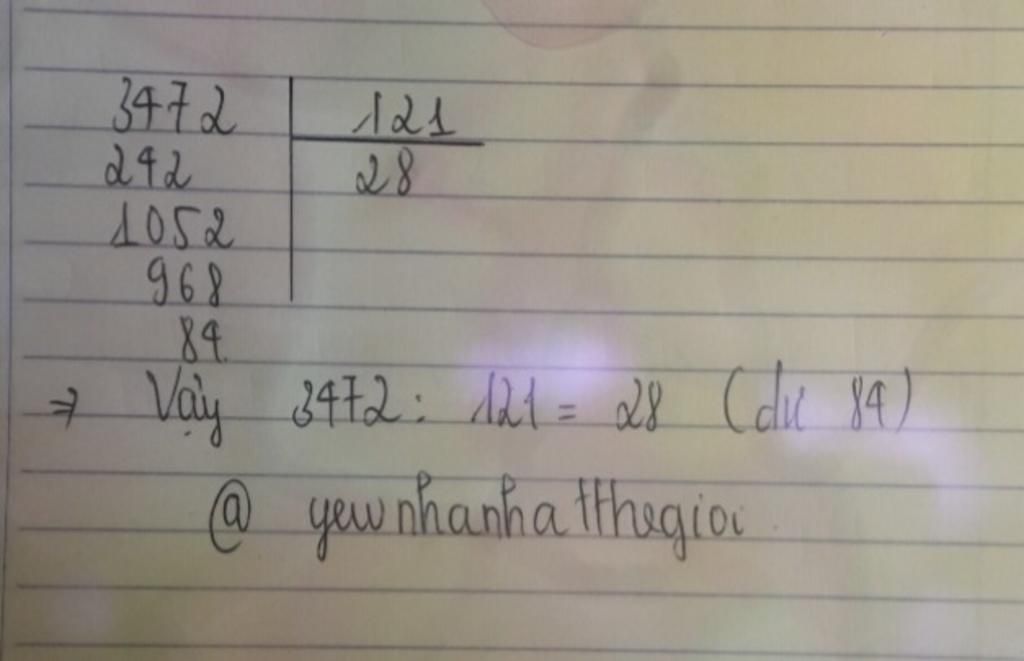 3472 121
242 28
1052
968
84
⇒ Vậy 3472 : 121 = 28 (dư 84)
@ yewnhanhatthegioi